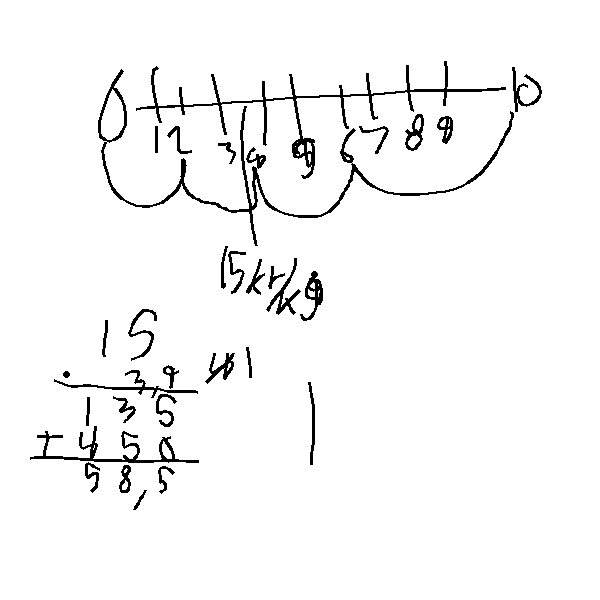 0 10
1 2 3 4 5 6 7 8 9
15kr/kg
15
· 3,9
135
+ 450
58,5